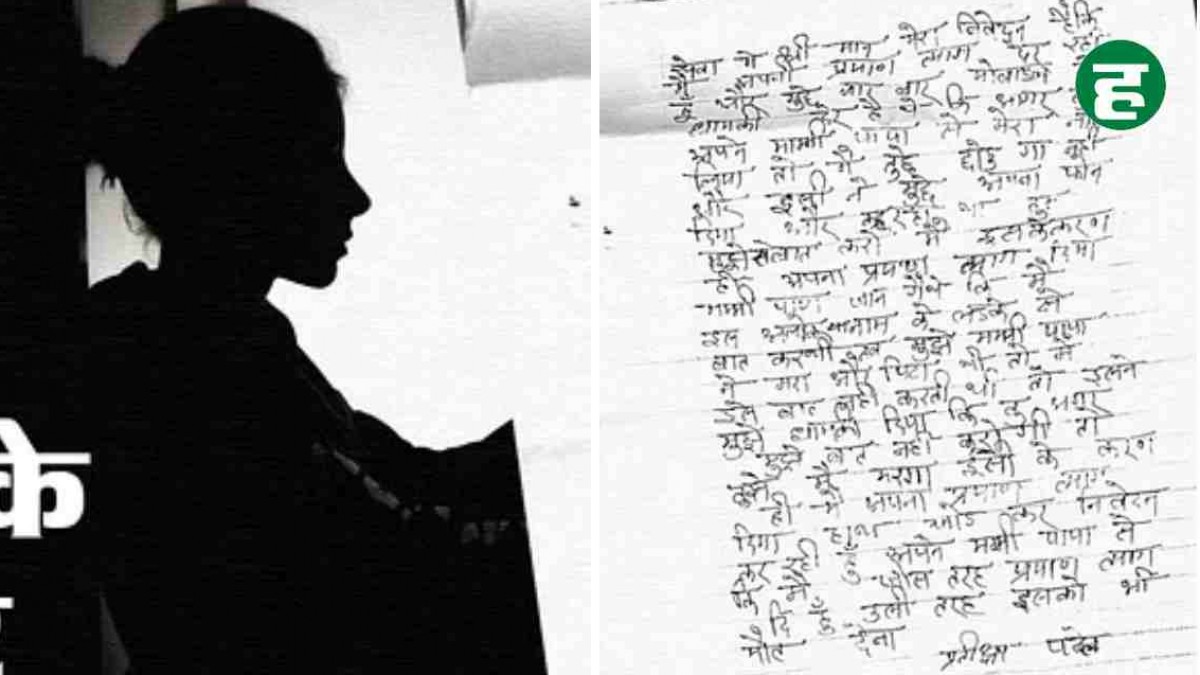 ह
के
सेवा में श्री मान मेरा निवेदन है कि
मैं अपनी प्रयाण त्याग दे रही
हूँ और मुझे बार बार मोबाइल
धामकी दे कि अगर
अपने मम्मी पापा से मेरा
लिया तो मैं तुझे छोड़ गा नही
और इसी ने मुझे अपना फोन
दिया और कह रहा था तुम
मुझसे बात करो मैं इसके करण
ही अपना प्रयाण त्याग दिया
मम्मी पापा जान गये थे कि मै
इस नाम के लडके से
बात करती मुझे मम्मी पापा
ने मरा और पिटा भी तो मै
इसे बात नही करती थी तो इसने
मुझे धामकी दिया कि तू अगर
मुझे बात नही करोगी तो
तुझे मै मरगा इसी के करण
ही मै अपना प्रयाण त्याग
दिया हाथ जोड कर निवेदन
कर रही हूँ अपने मम्मी पापा से
कि मै जीस तरह प्रयाण त्याग
दि हूँ उसी तरह इसको भी
मौत देना
प्रतीक्षा पटेल